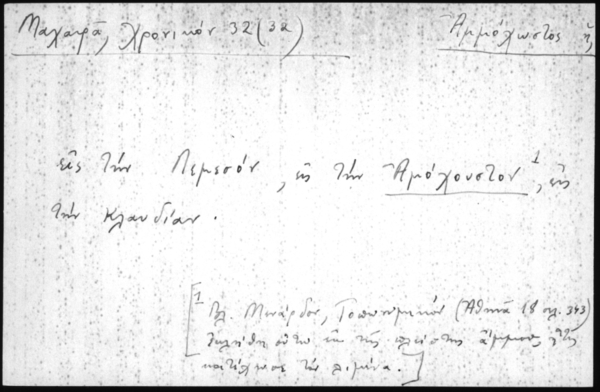 Μαχαιρᾶ, Χρονικόν 32 (32) Ἀμμόχωστος ἡ
εἰς τὴν Λεμεσόν, εἰς τὴν Ἀμόχουστον¹, εἰς
τὴν Κλαυδίαν.
[¹ Βλ. Μενάρδου, Τοπωνυμικόν (Ἀθηνᾶ 18 σελ. 343)
ἐκλήθη οὕτω ἐκ τῆς πλείστης ἄμμου ἥτις
κατέχωσε τὸν λιμένα.]